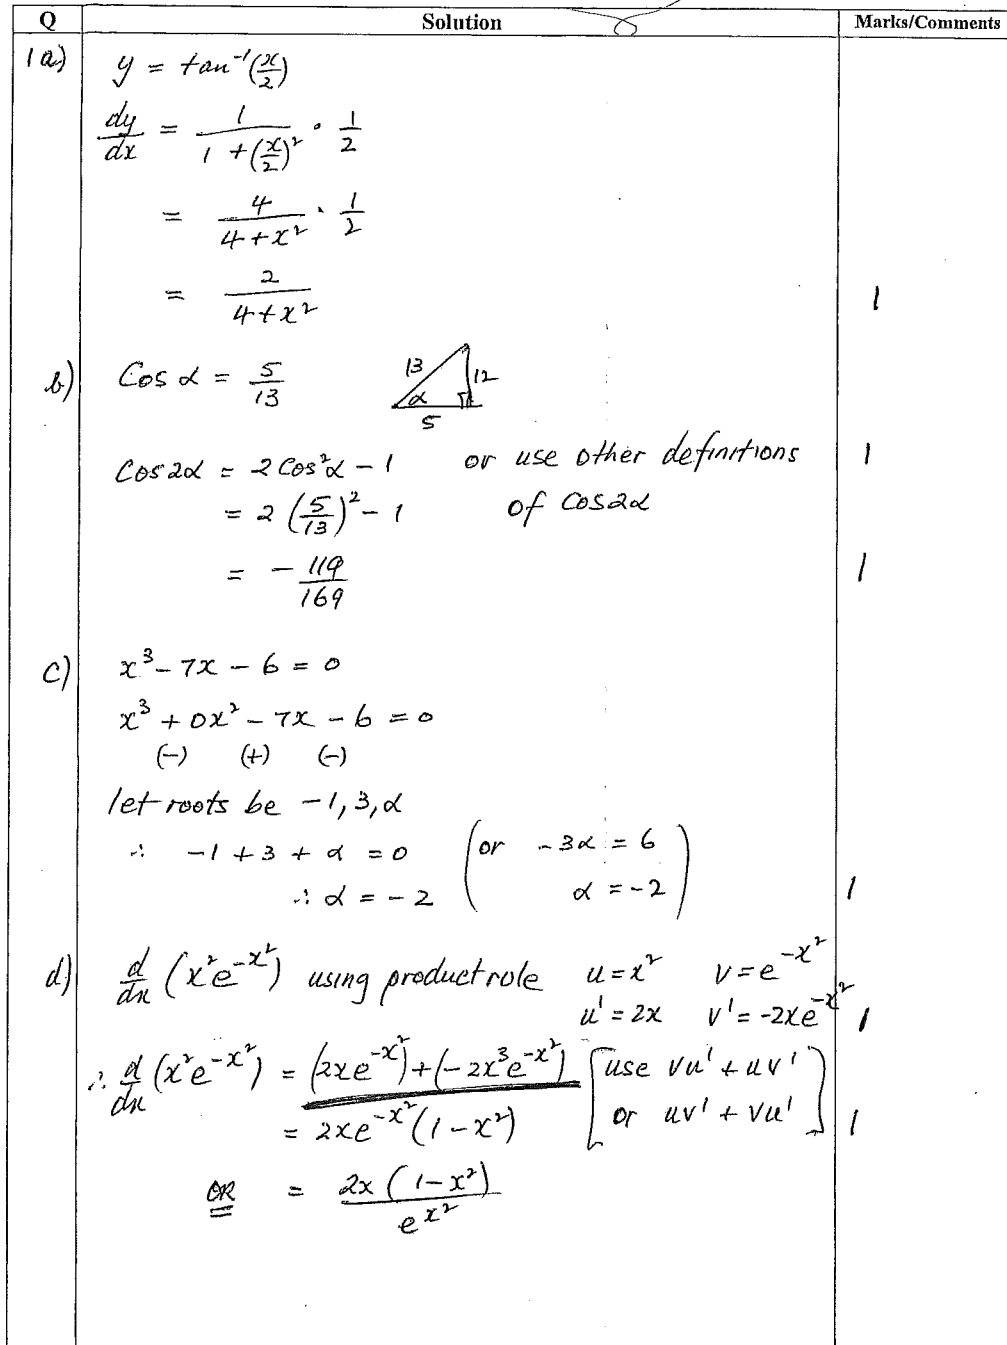 Q Solution Marks/Comments
1a) y = tan⁻¹(x/2)
dy/dx = 1/(1 + (x/2)²) · 1/2
= 4/(4 + x²) · 1/2
= 2/(4 + x²) 1
b) Cos α = 5/13 13 12 α 5
Cos 2α = 2 Cos²α − 1 or use other definitions 1
= 2 (5/13)² − 1 of Cos2α
= − 119/169 1
c) x³ − 7x − 6 = 0
x³ + 0x² − 7x − 6 = 0
(−) (+) (−)
let roots be −1, 3, α
∴ −1 + 3 + α = 0 (or −3α = 6
∴ α = −2 α = −2) 1
d) d/dx (x²e^(−x²)) using product rule u = x² v = e^(−x²)
u' = 2x v' = −2xe^(−x²) 1
∴ d/dx (x²e^(−x²)) = (2xe^(−x²)) + (−2x³e^(−x²)) [use vu' + uv'
= 2xe^(−x²)(1 − x²) or uv' + vu'] 1
OR = 2x(1 − x²)/e^(x²)